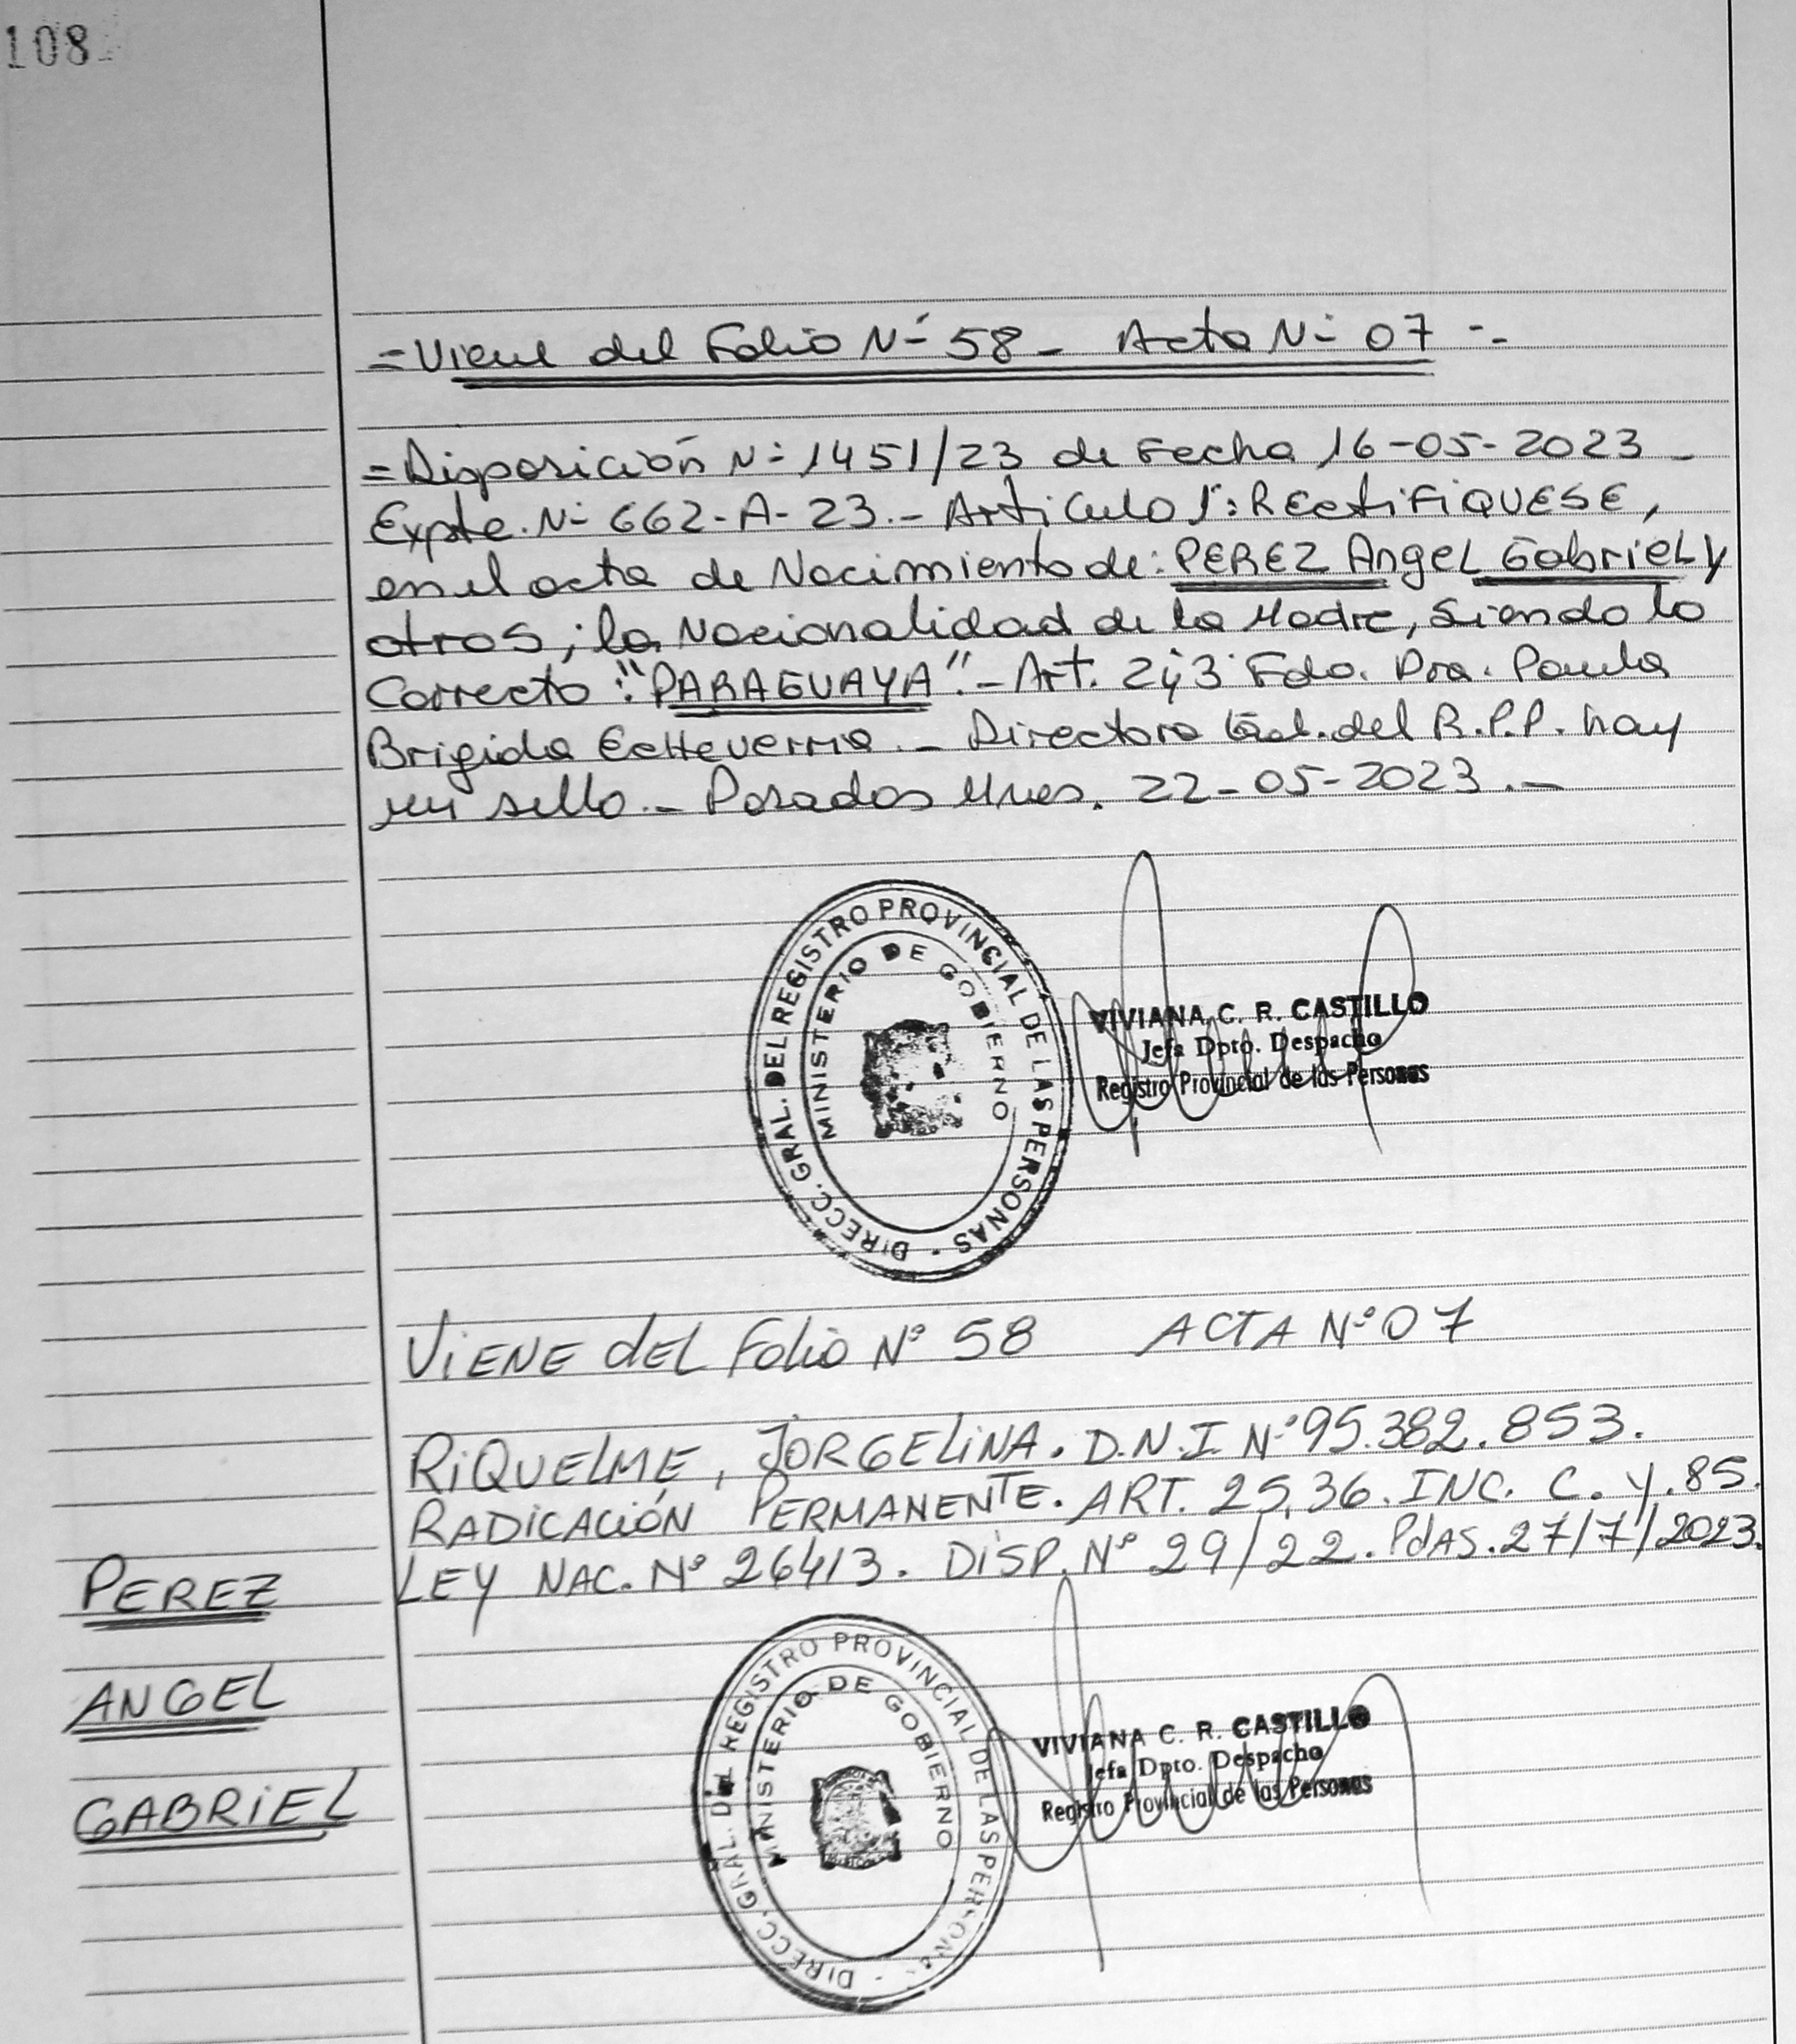 108
=Viene del Folio Nº 58 - Acta Nº 07 -.-
=Disposición Nº 1451/23 de Fecha 16-05-2023 -
Expte. Nº 662-A-23.- Artículo 1º: RECTIFIQUESE,
en el acta de Nacimiento de: PEREZ Angel Gabriel y
otros; la Nacionalidad de la Madre, siendo lo
Correcto: "PARAGUAYA".- Art. 2 y 3 Fdo. Dra. Paula
Brigida Echeverria.- Directora Gral. del R.P.P. hay
un sello.- Posadas Mnes. 22-05-2023.-
DIRECC. GRAL. DEL REGISTRO PROVINCIAL DE LAS PERSONAS -
MINISTERIO DE GOBIERNO
VIVIANA C. R. CASTILLO
Jefa Dpto. Despacho
Registro Provincial de las Personas
VIENE DEL Folio Nº 58 ACTA Nº 07
RIQUELME, JORGELINA. D.N.I Nº 95.382.853.
RADICACIÓN PERMANENTE. ART. 25,36. INC. C. Y. 85.
LEY NAC. Nº 26413. DISP. Nº 29/22. PdAS. 27/7/2023.
PEREZ
ANGEL
GABRIEL
DIRECC. GRAL. DEL REGISTRO PROVINCIAL DE LAS PERSONAS -
MINISTERIO DE GOBIERNO
VIVIANA C. R. CASTILLO
Jefa Dpto. Despacho
Registro Provincial de las Personas